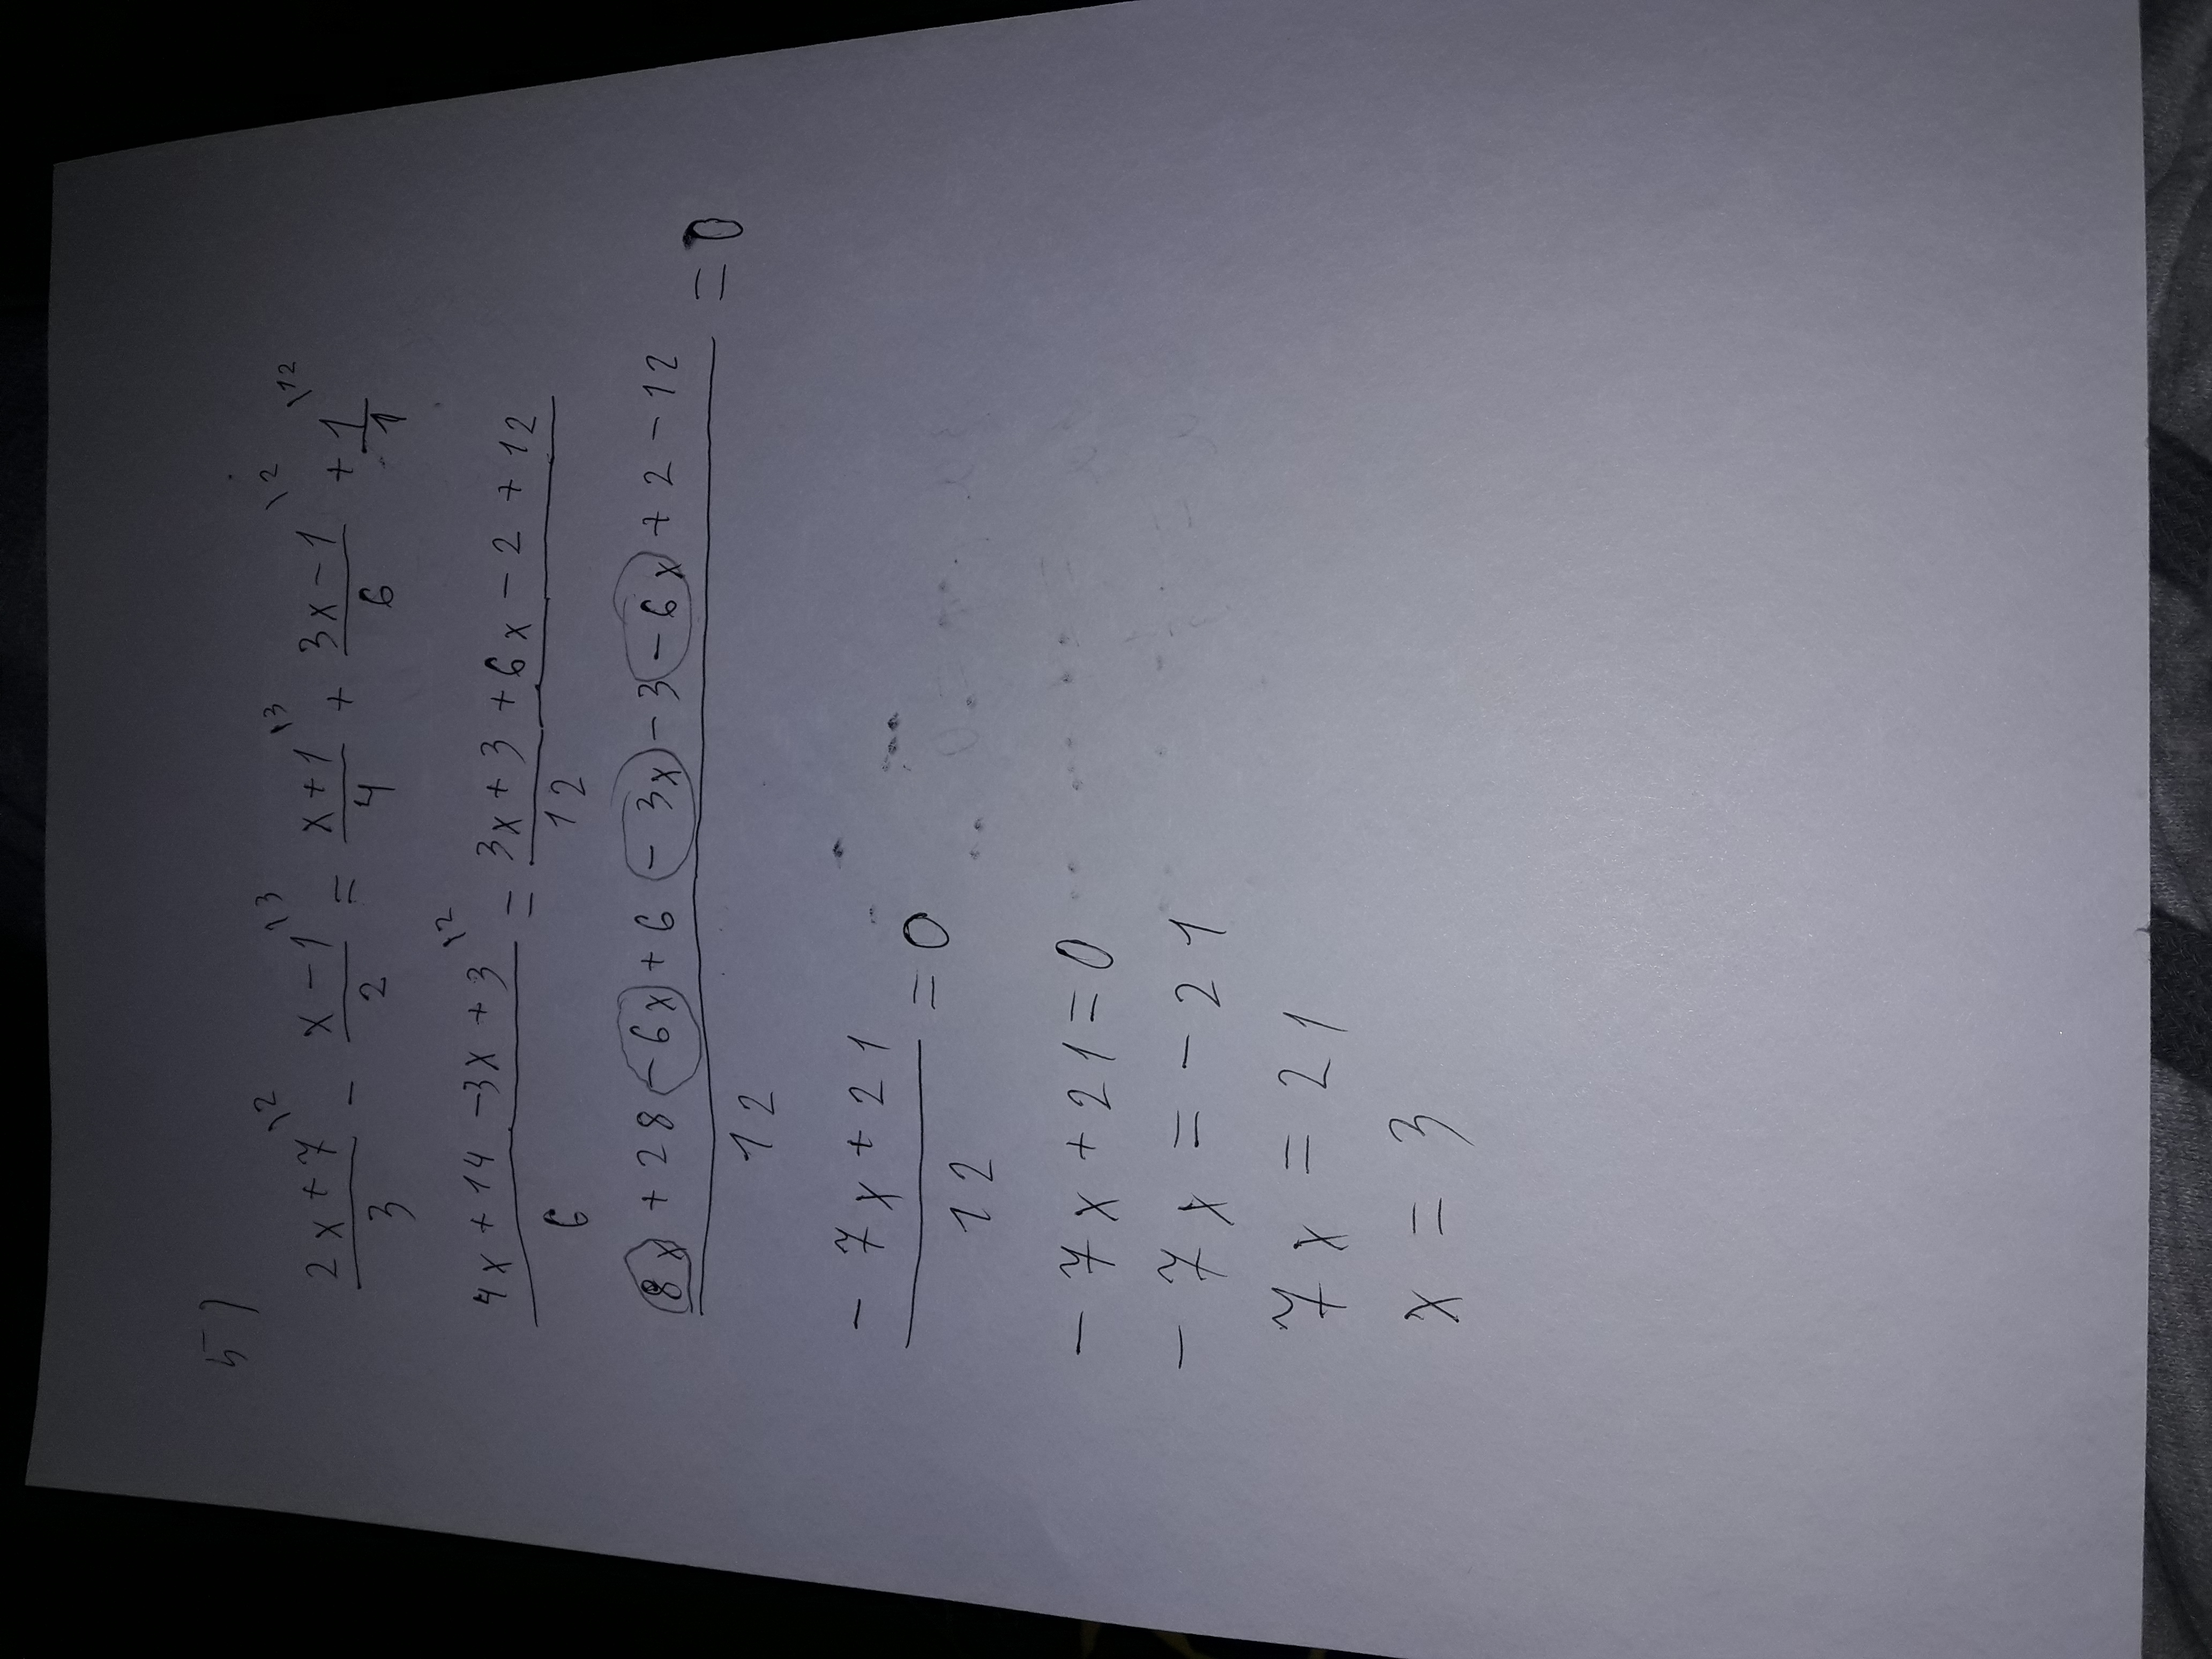 5)
\frac{2x+7}{3}^{\2} - \frac{x-1}{2}^{\3} = \frac{x+1}{4}^{\3} + \frac{3x-1}{6}^{\2} + \frac{1}{1}^{\12}
\frac{4x+14-3x+3}{6}^{\2} = \frac{3x+3+6x-2+12}{12}
\frac{8x+28-6x+6-3x-3-6x+2-12}{12} = 0
\frac{-7x+21}{12} = 0
-7x+21=0
-7x=-21
7x=21
x=3